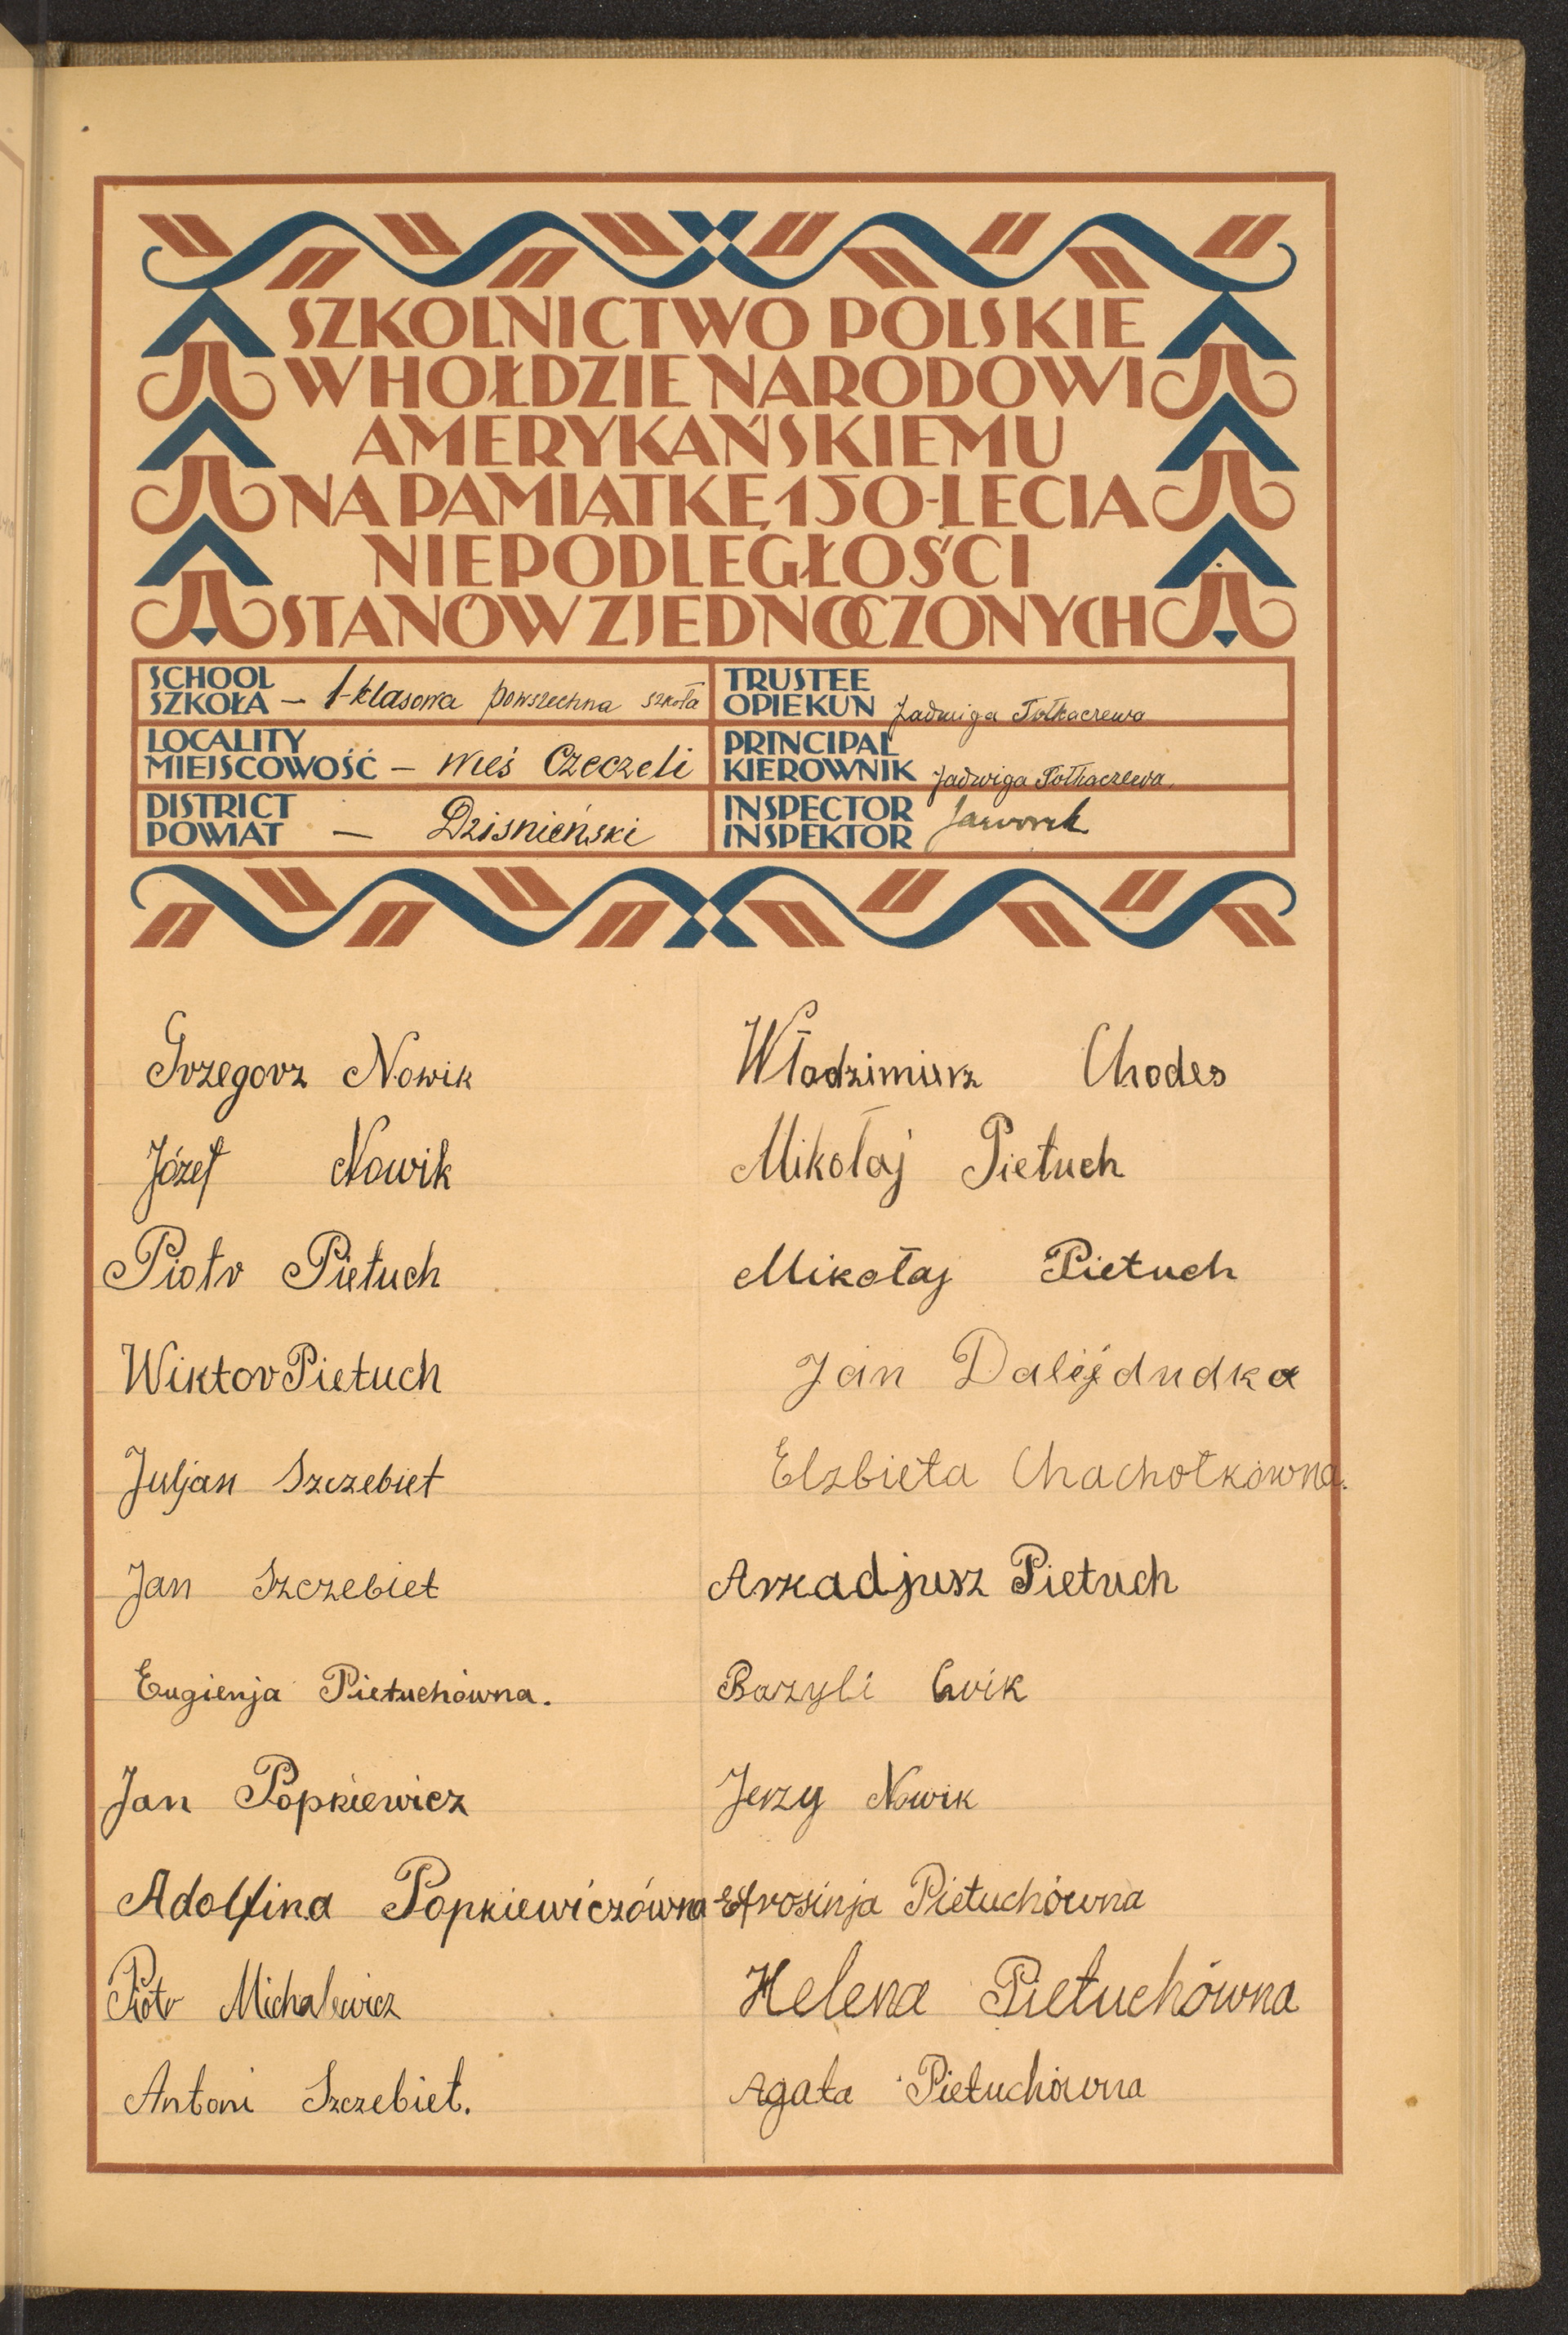 SZKOLNICTWO POLSKIE
W HOŁDZIE NARODOWI
AMERYKAŃSKIEMU
NA PAMIĄTKĘ 150-LECIA
NIEPODLEGŁOŚCI
STANÓW ZJEDNOCZONYCH
SCHOOL
SZKOŁA – 1-klasowa powszechna szkoła
LOCALITY
MIEJSCOWOŚĆ – wieś Czeczeli
DISTRICT
POWIAT – Dziśnieński
TRUSTEE
OPIEKUN Jadwiga Tołkaczewa
PRINCIPAL
KIEROWNIK Jadwiga Tołkaczewa.
INSPECTOR
INSPEKTOR Jaworek
Grzegorz Nowik
Józef Nowik
Piotr Pietuch
Wiktor Pietuch
Juljan Szczebiet
Jan Szczebiet
Eugienja Pietuchówna.
Jan Popkiewicz
Adolfina Popkiewiczówna
Piotr Michalewicz
Antoni Szczebiet.
Włodzimierz Chodes
Mikołaj Pietuch
Mikołaj Pietuch
Jan Dalejdudka
Elzbieta Chachołkówna.
Arkadjusz Pietuch
Bazyli
Jerzy Nowik
Efrosinja Pietuchówna
Helena Pietuchówna
Agata Pietuchówna